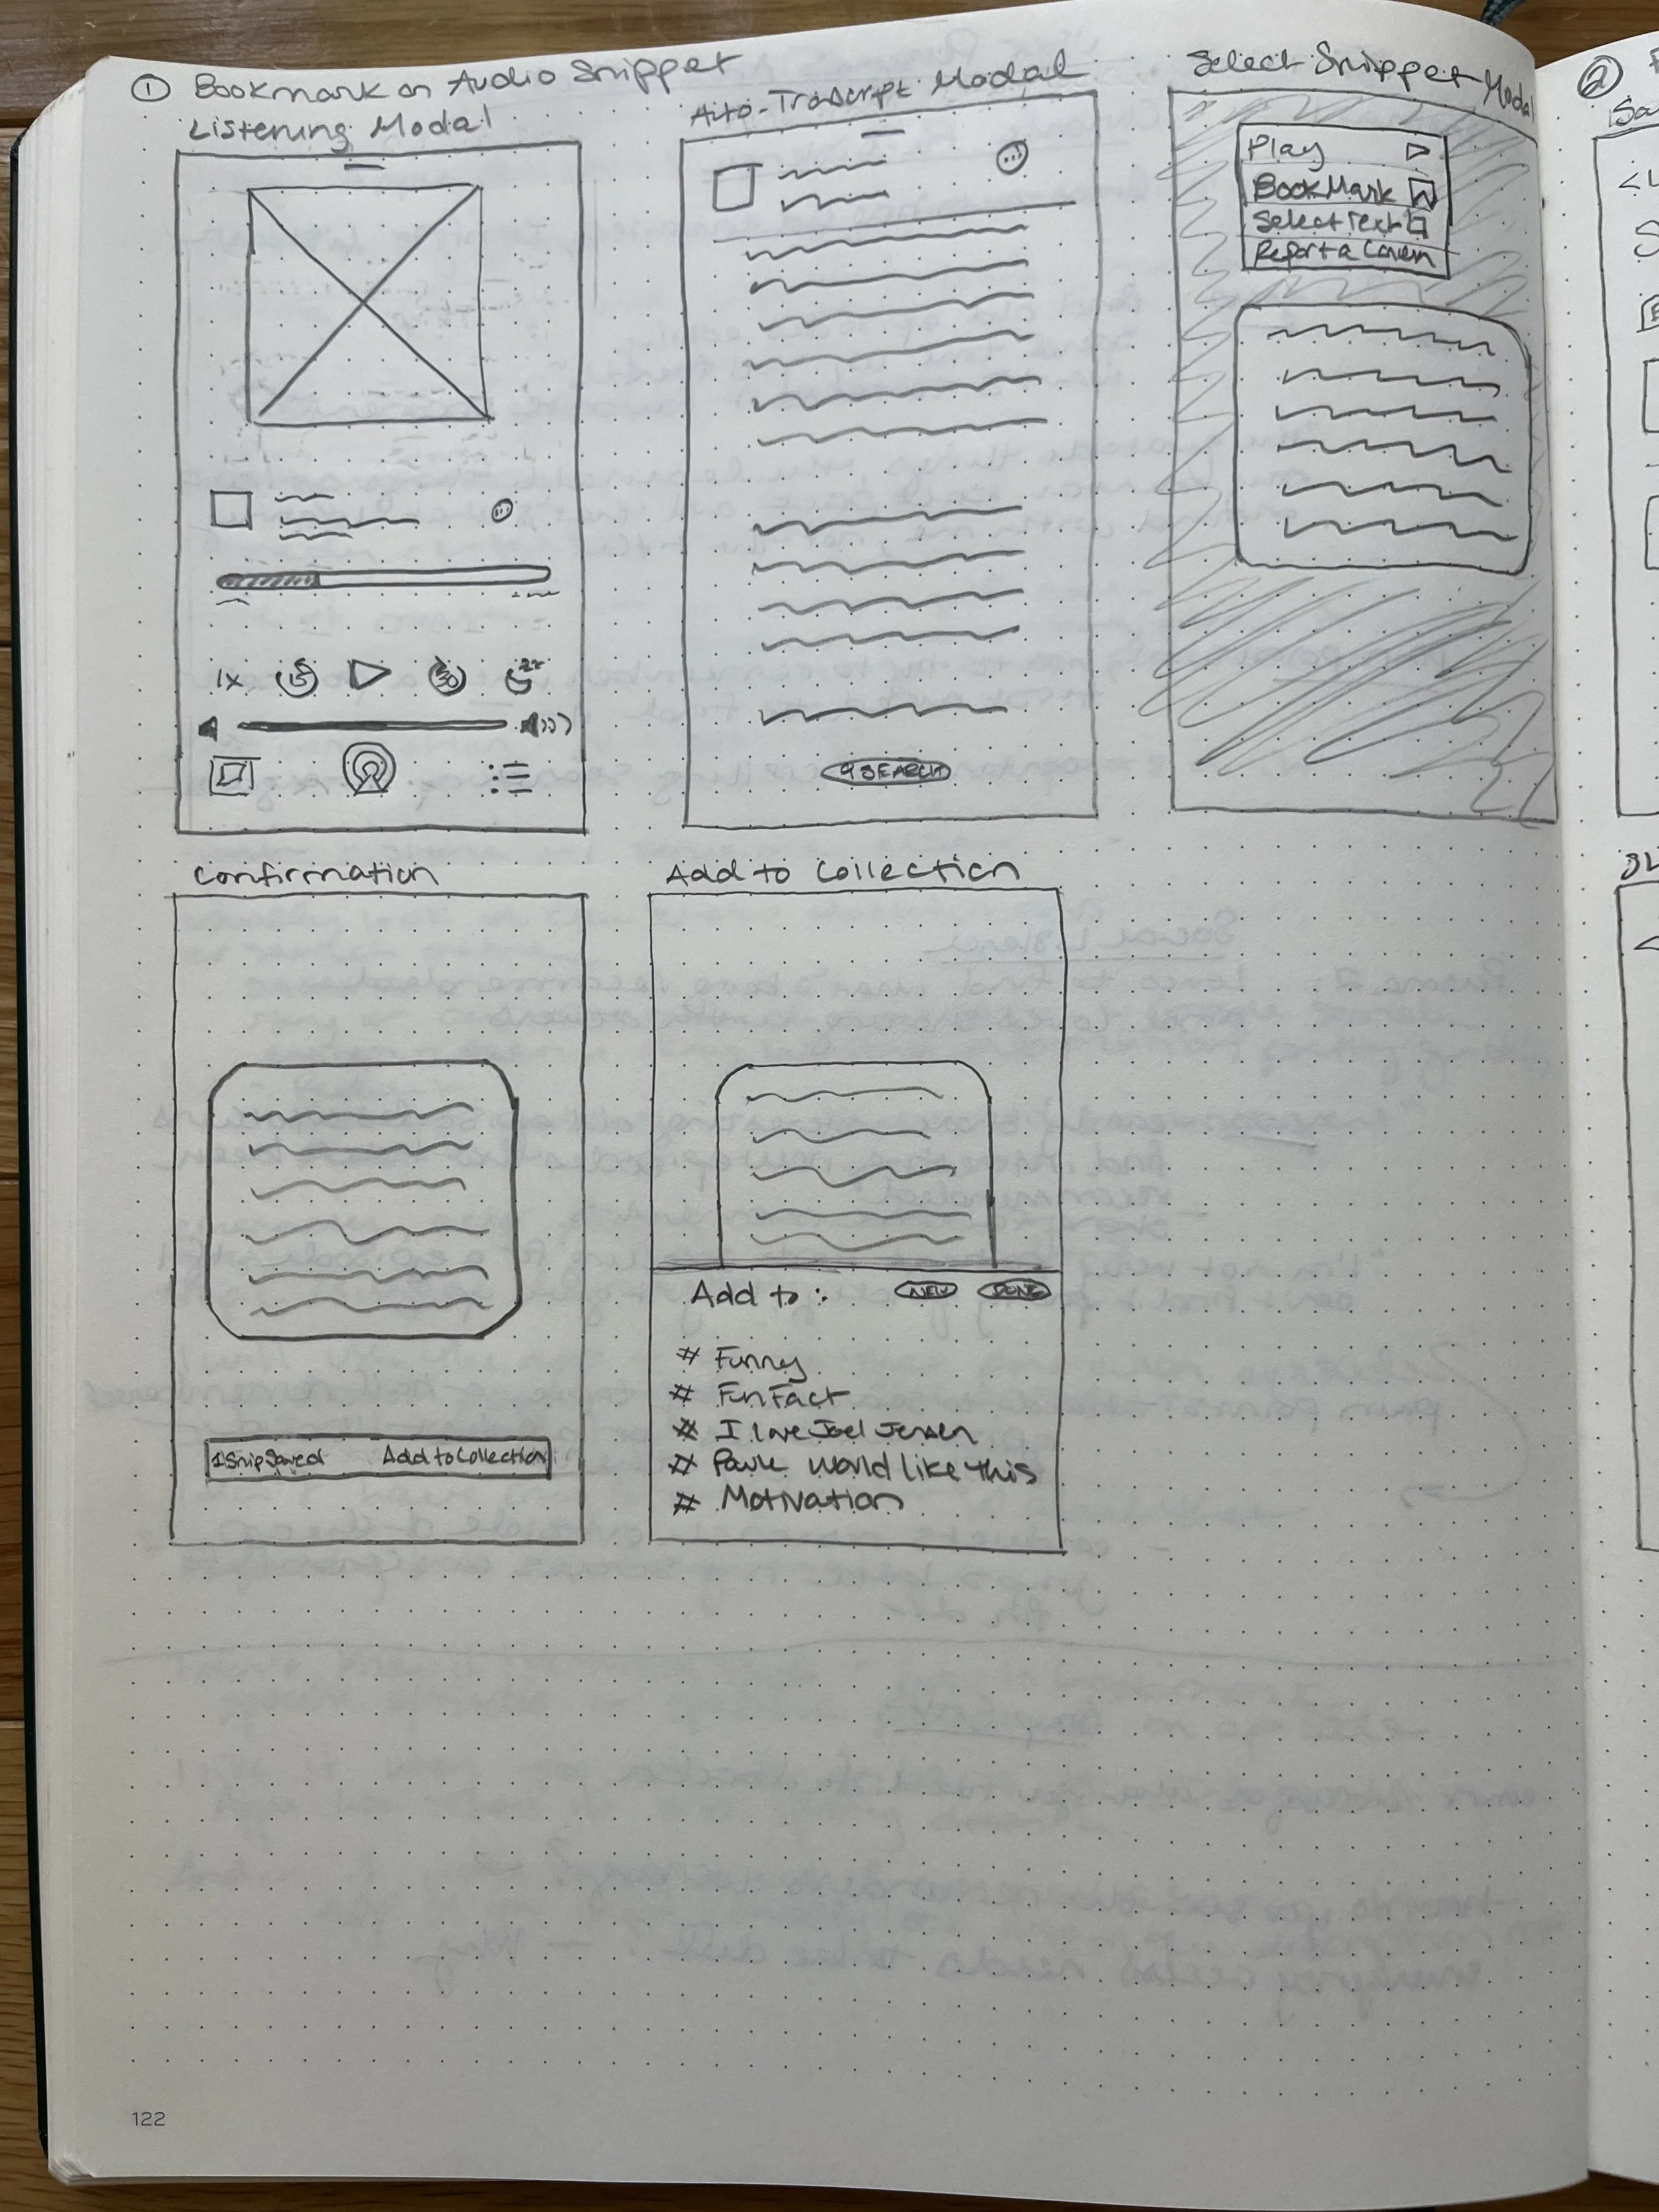 ① Bookmark an Audio Snippet
Listening Modal
Auto-Transcript Modal
Select Snippet Modal
②
Play
BookMark
Select Text
Report a
1x
15
30
SEARCH
Confirmation
Add to Collection
1 Snip Saved Add to Collection
Add to: NEW DONE
# Funny
# Fun Fact
# I love Joel Jensen
# would like this
# Motivation
122